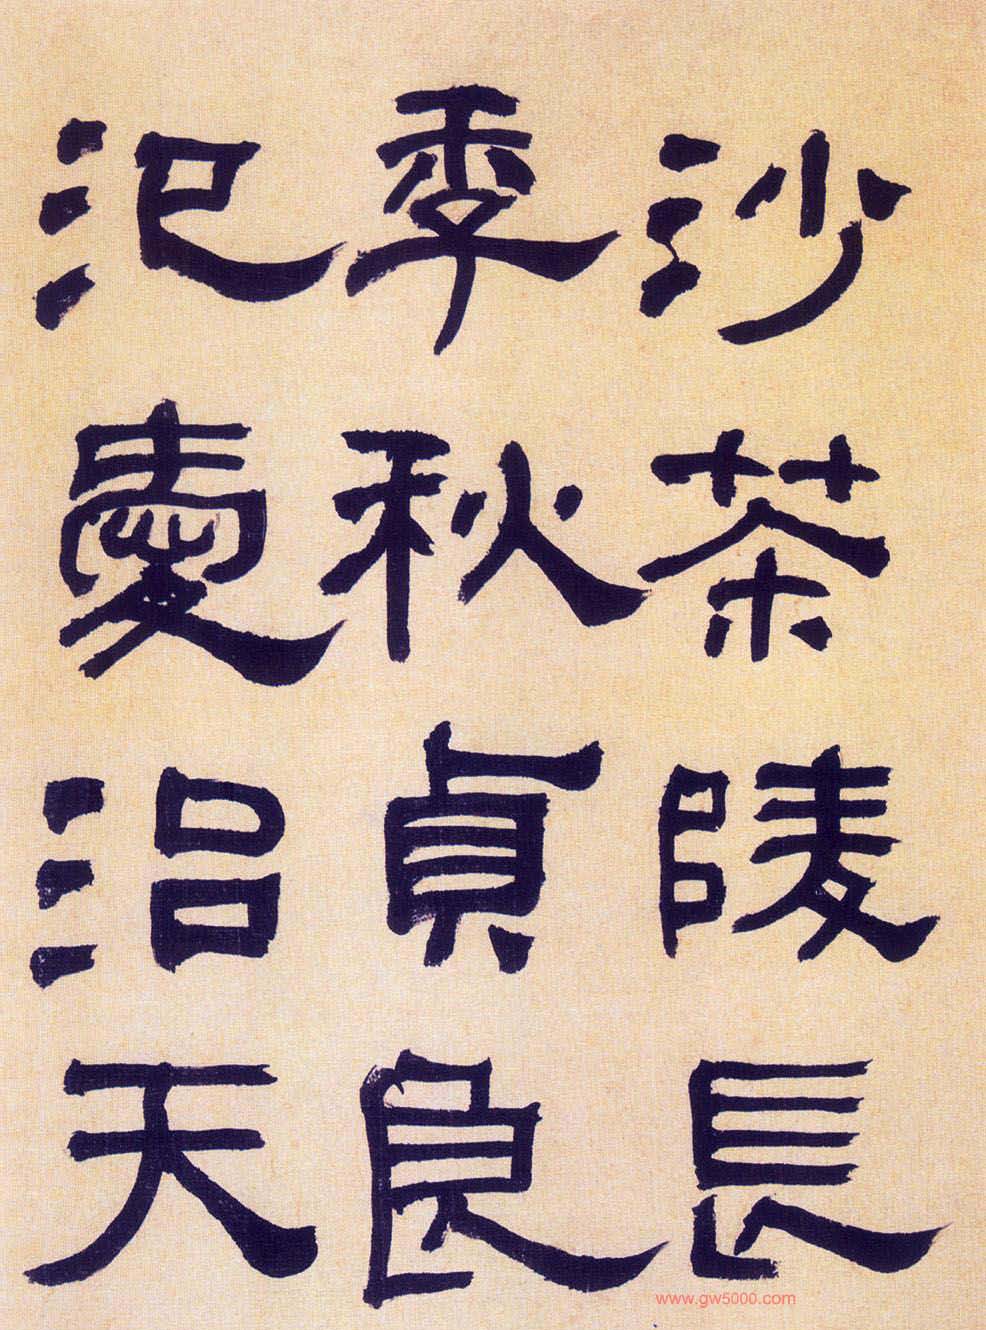 沙茶陵長
季秋貞良
氾愛治天
www.gw5000.com